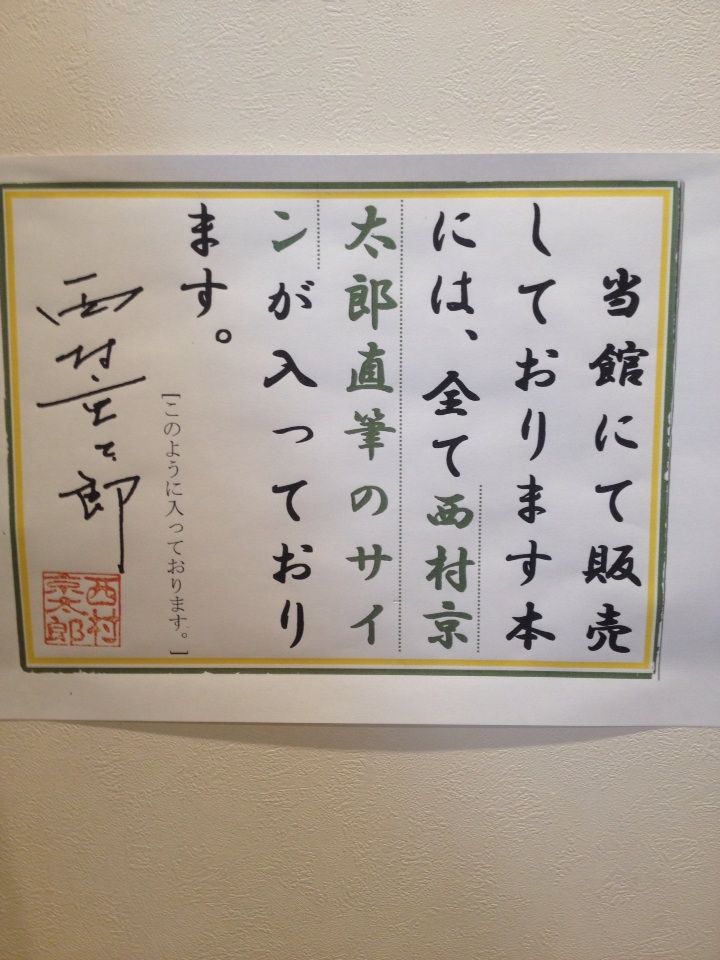 当館にて販売
しております本
には、全て西村京
太郎直筆のサイ
ンが入っており
ます。
[このように入っております。]
西村京太郎
西村
京太郎